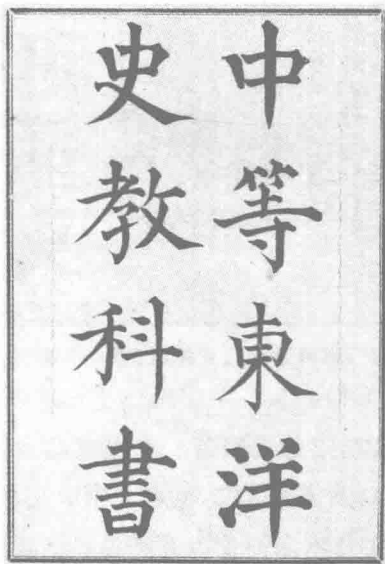 中等東洋
史教科書